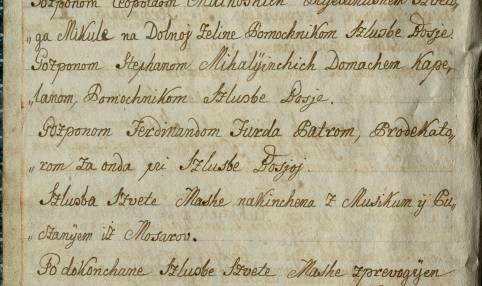 Gozponom Leopoldom
„ga Mikule na Dolnoj Zeline Pomochnikom Szlusbe Bosje.
Gozponom Stephanom Mihalyinchich Domachem Kape„
„lanom, Pomochnikom Szlusbe Bosje.
Gozponom Ferdinandom Jurda Patrom, Prodekato„
„rom za onda pri Szlusbe Bosjoj.
Szlusba Szvete Mashe nakinchena z Musikum ÿ Pu„
„czanÿem iz Mosarov.
Po dokonchane Szlusbe Szvete Mashe zprevogÿen